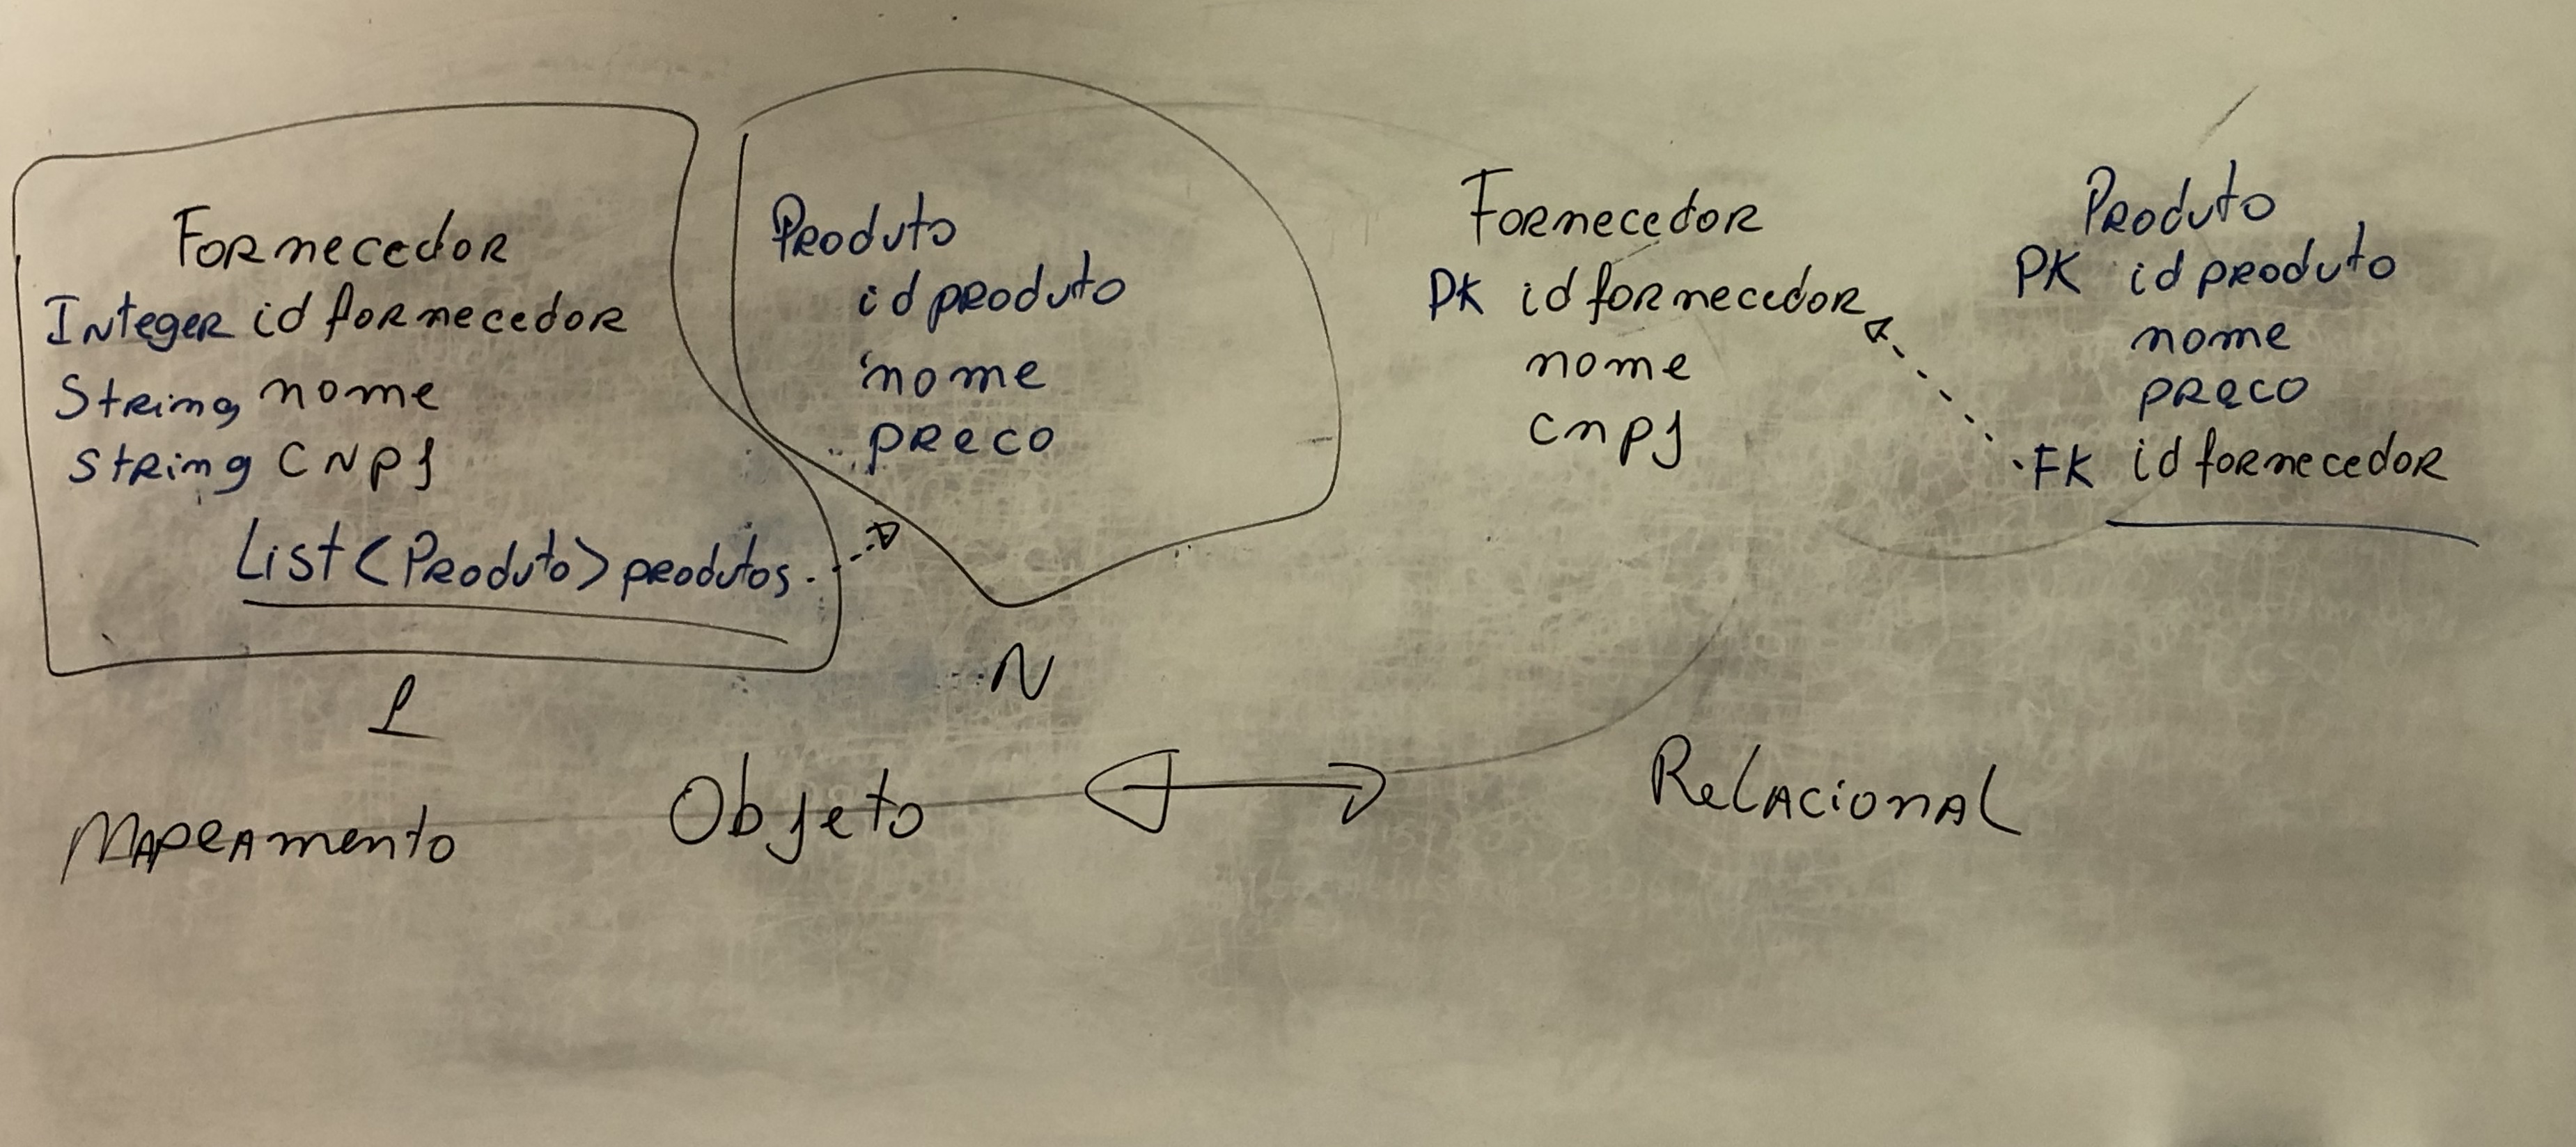 Fornecedor
Integer idfornecedor
String nome
String CNPJ
List<Produto> produtos
1
Produto
idproduto
nome
preco
N
Fornecedor
PK idfornecedor
nome
cnpj
Produto
PK idproduto
nome
preco
FK idfornecedor
Mapeamento Objeto Relacional